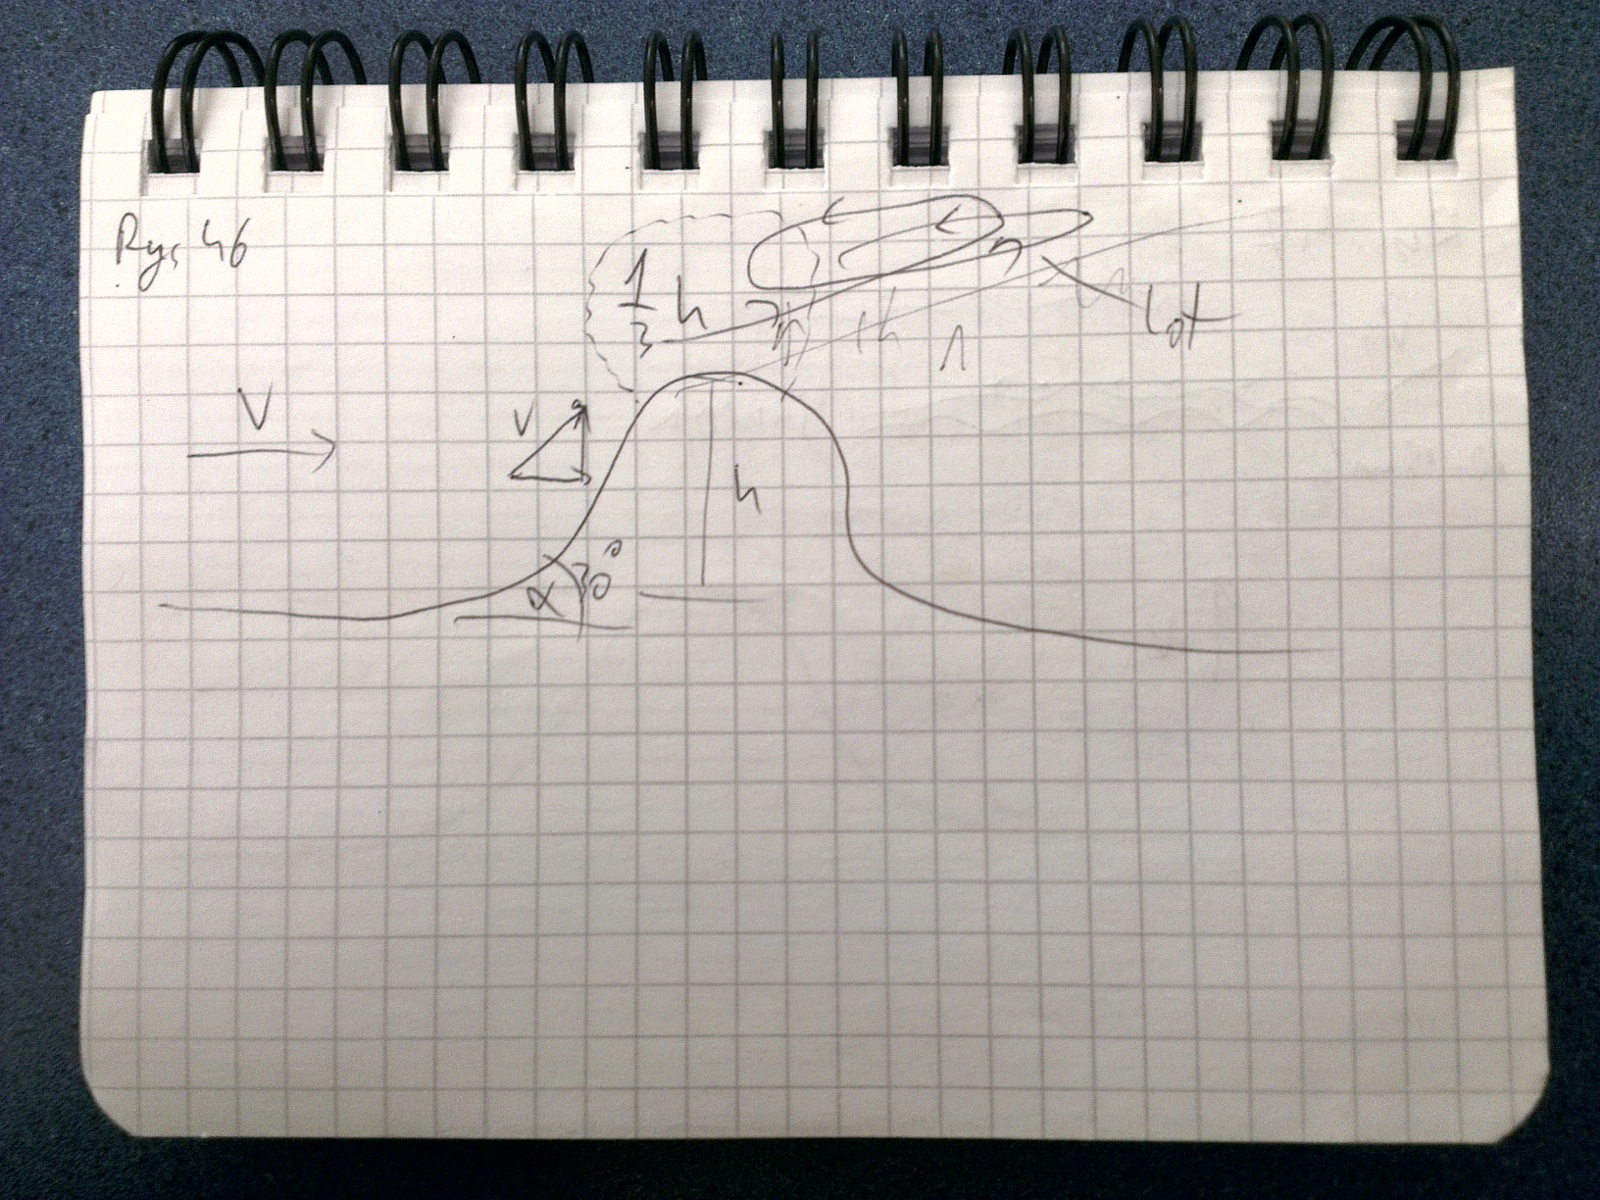 Rys 46
1/3 h
lot
V
V
h
α 30°